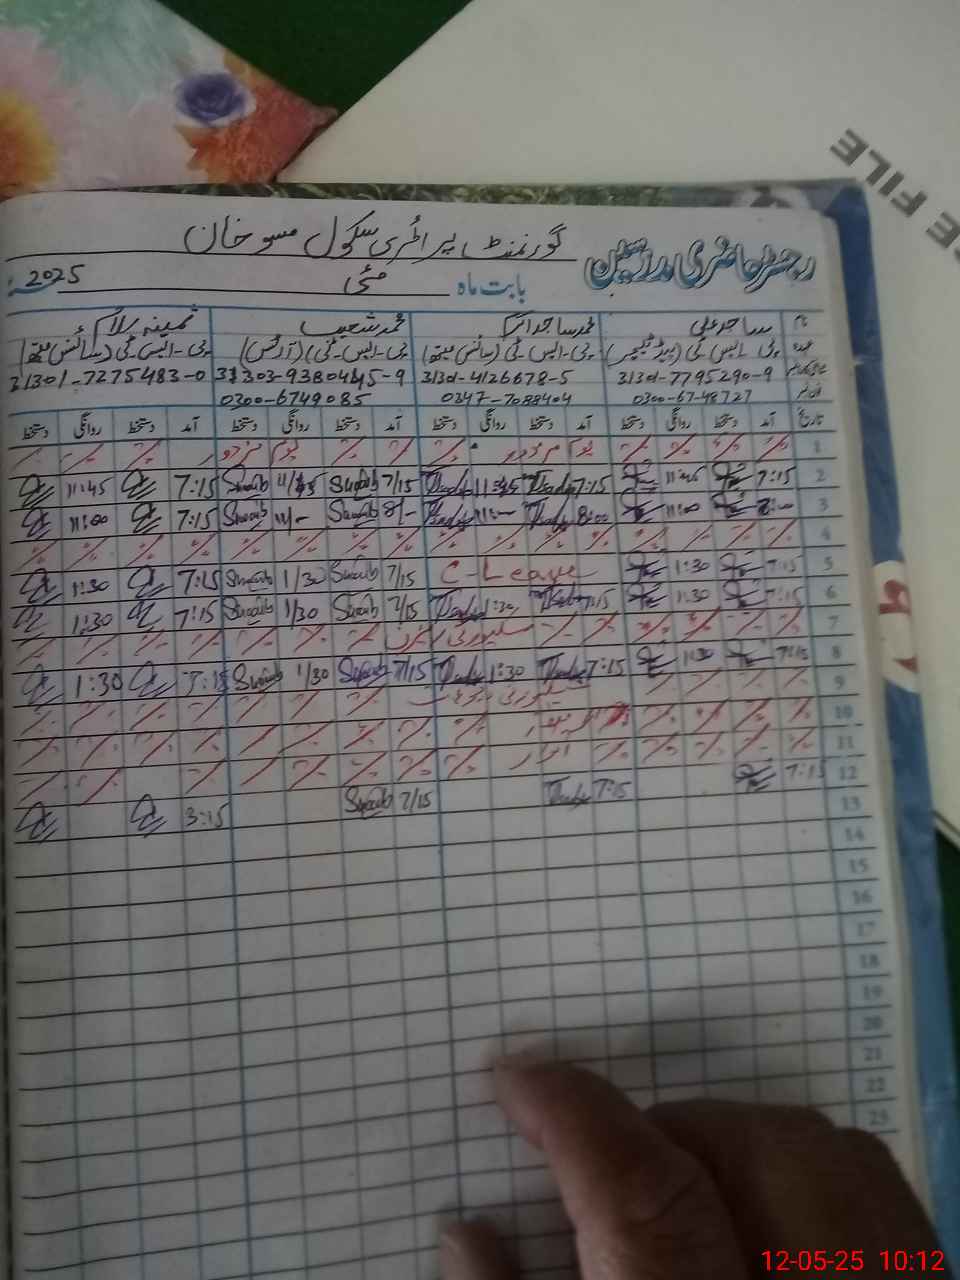 FILE
E
گورنمنٹ پرائمری سکول مسو خان
رجسٹر حاضری مدرسین
بابت ماہ مئی 2025
نام ساجد علی محمد ساجد محمد شعیب ثمینہ
عہدہ پی ایس ٹی (ہیڈ ٹیچر) پی-ایس ٹی (سائنس میتھ) پی-ایس-ٹی (آرٹس) پی-ایس ٹی (سائنس میتھ)
31301-7795290-9 31301-4126678-5 31303-9380445-9 31301-7275483-0
0300-6748727 0347-7088404 0300-6749085
تاریخ آمد دستخط روانگی دستخط آمد دستخط روانگی دستخط آمد دستخط روانگی دستخط آمد دستخط روانگی دستخط
1 یوم مزدور یوم مزدور
2 7:15 11:45 7:15 11:45 7/15 Shoaib 11/45 Shoaib 7:15 11:45
3 8:00 11:00 8:00 11:00 8/- Shoaib 11/- Shoaib 7:15 11:00
4
5 7:15 1:30 C-Leave 7/15 Shoaib 1/30 Shoaib 7:15 1:30
6 7:15 1:30 7:15 1:30 7/15 Shoaib 1/30 Shoaib 7:15 1:30
7
8 7:15 1:30 7:15 1:30 7/15 Shoaib 1/30 Shoaib 7:15 1:30
9
10
11 اتوار
12 7:15 7:15 7/15 Shoaib 3:15
13
14
15
16
17
18
19
20
21
22
23
12-05-25 10:12